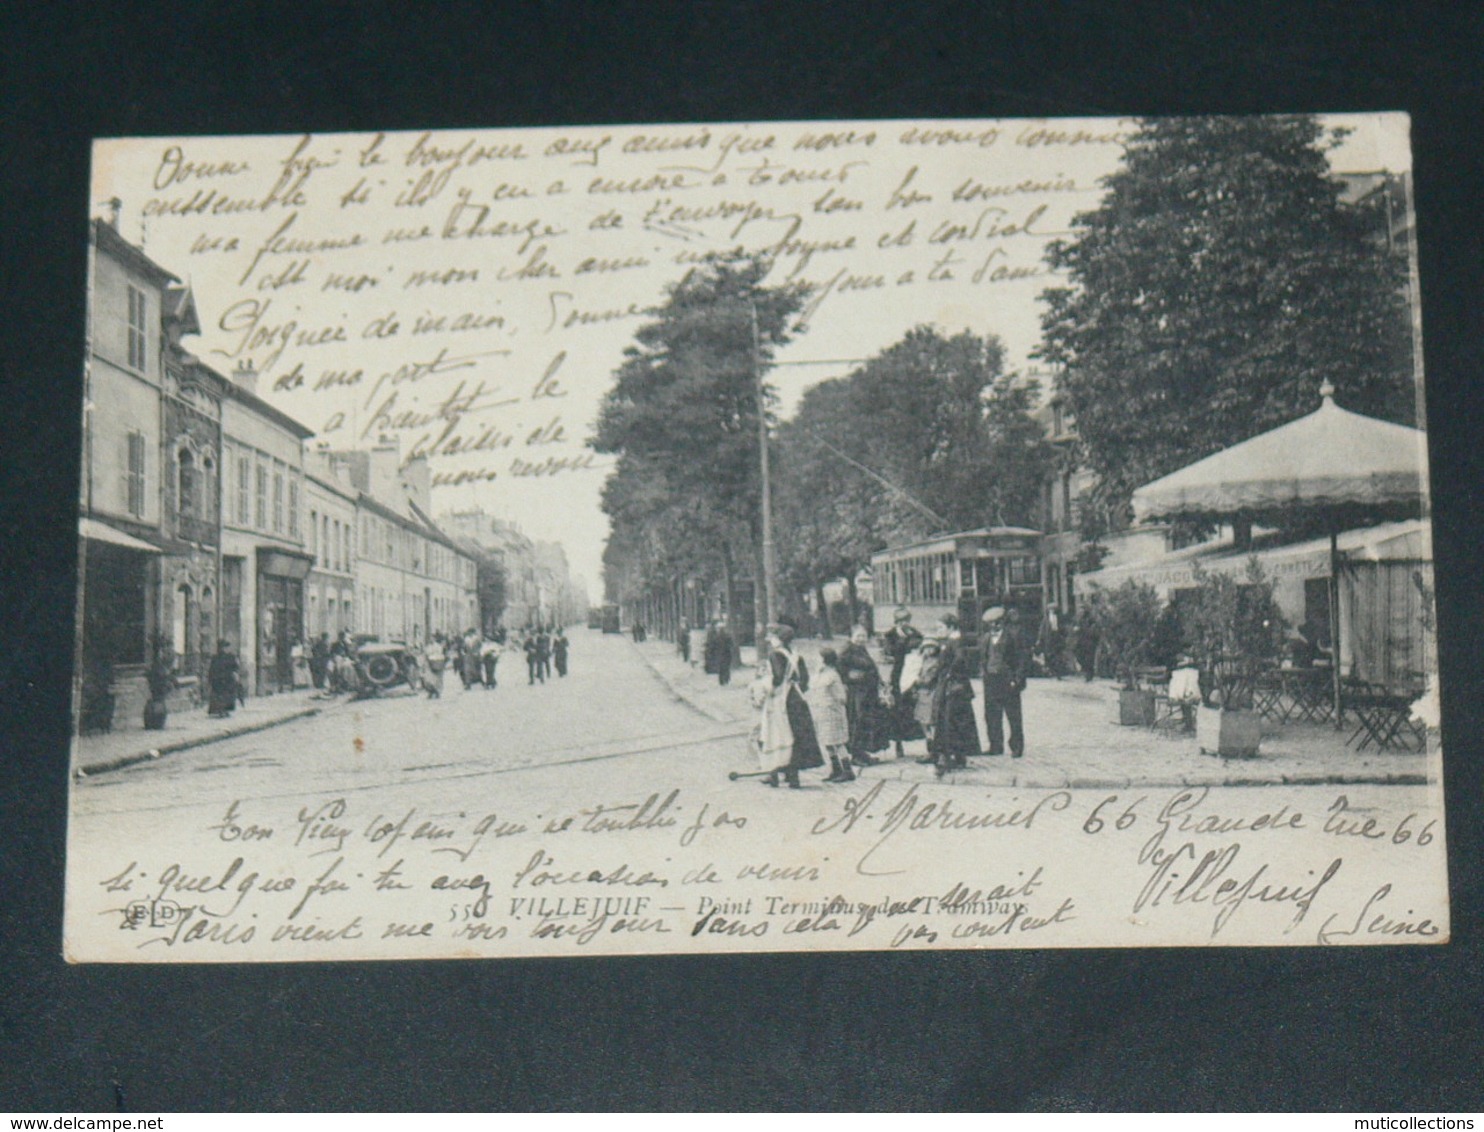 Donne bien le bonjour aux amis que nous avons connu
enssemble si ils y en a encore a Tours
ma femme me charge de t'envoyer son bon souvenir
est moi mon cher ami une bonne et cordial
Poignée de main, Donne bonjour a ta Dame
de ma part
a Bientot le
plaisir de
nous revoir
Ton vieux copain qui ne toublie pas A. Marinier 66 Grande rue 66
si quelque foi tu avez l'occasion de venir Villejuif
a Paris vient me voir toujour sans cela je ne serait
pas content Seine
ELD 55 VILLEJUIF — Point Terminus des Tramways
www.delcampe.net muticollections